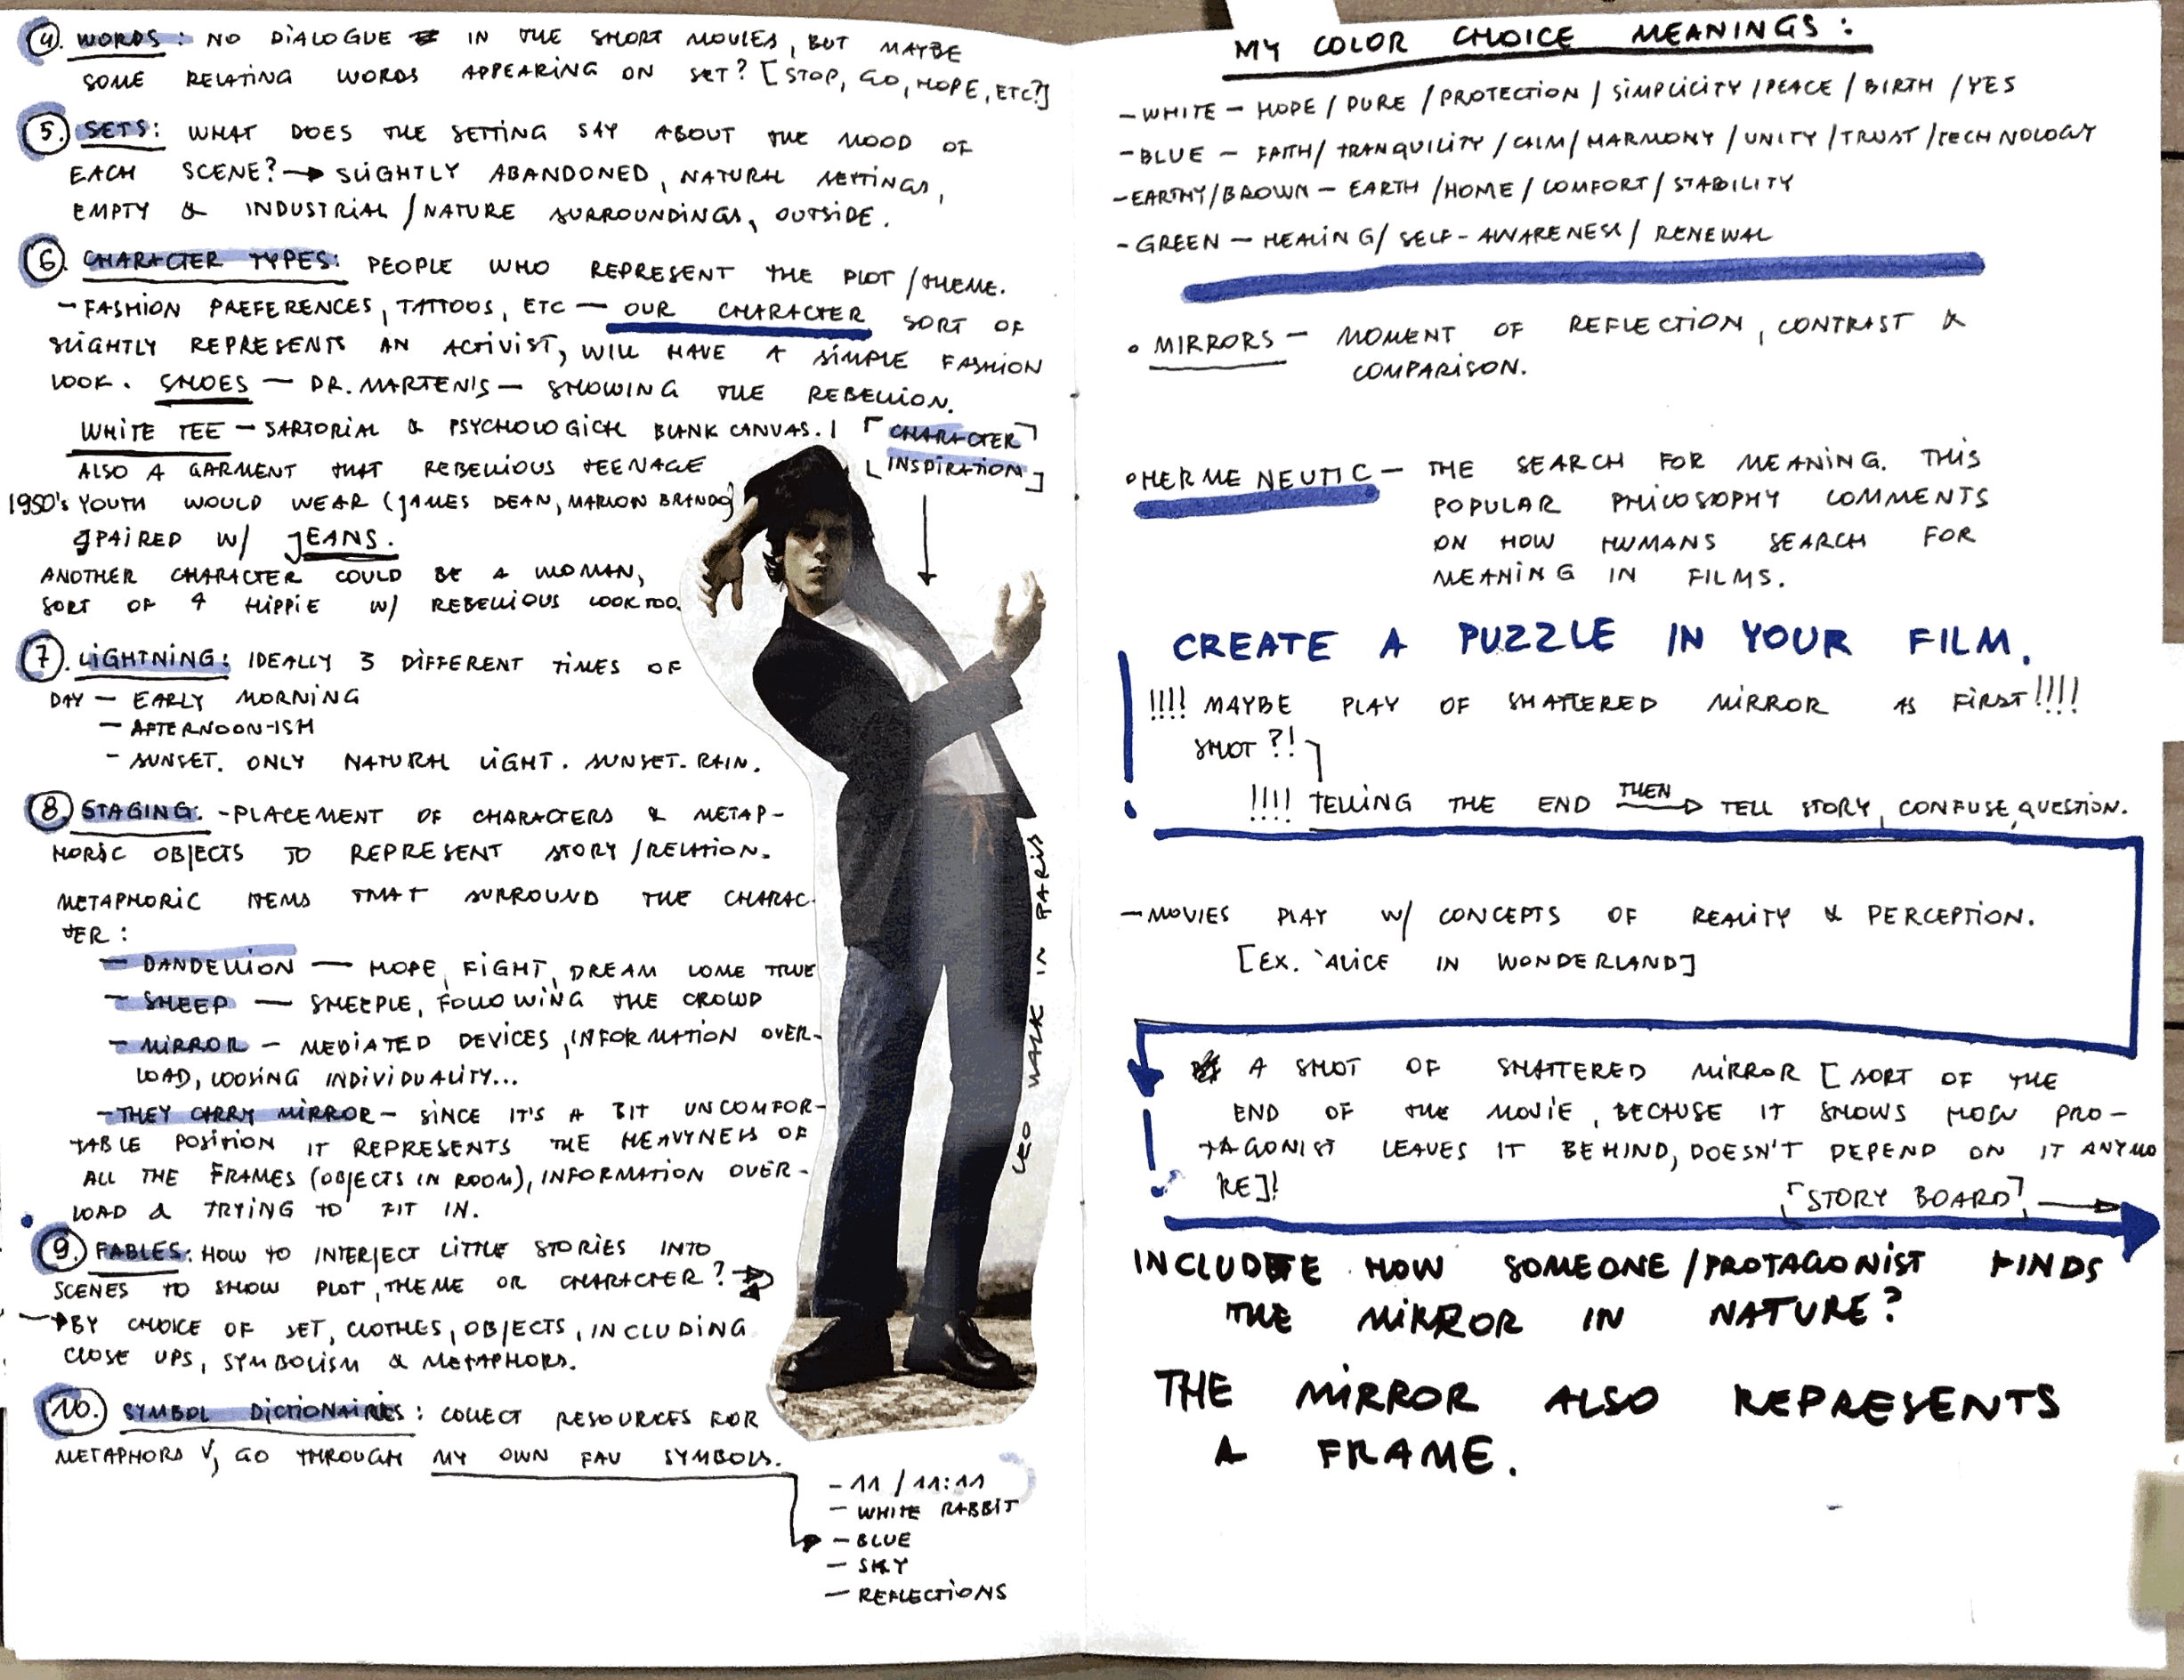 4. WORDS: NO DIALOGUE IN THE SHORT MOVIES, BUT MAYBE
SOME RELATING WORDS APPEARING ON SET? [STOP, GO, HOPE, ETC?]
5. SETS: WHAT DOES THE SETTING SAY ABOUT THE MOOD OF
EACH SCENE? → SLIGHTLY ABANDONED, NATURAL SETTINGS,
EMPTY & INDUSTRIAL/NATURE SURROUNDINGS, OUTSIDE.
6. CHARACTER TYPES: PEOPLE WHO REPRESENT THE PLOT/THEME.
- FASHION PREFERENCES, TATTOOS, ETC - OUR CHARACTER SORT OF
SLIGHTLY REPRESENTS AN ACTIVIST, WILL HAVE A SIMPLE FASHION
LOOK. SHOES - DR. MARTENIS - SHOWING THE REBELLION.
WHITE TEE - SARTORIAL & PSYCHOLOGICAL BLANK CANVAS.
ALSO A GARMENT THAT REBELLIOUS TEENAGE
1950's YOUTH WOULD WEAR (JAMES DEAN, MARLON BRANDO)
PAIRED W/ JEANS.
ANOTHER CHARACTER COULD BE A WOMAN,
SORT OF A HIPPIE W/ REBELLIOUS LOOK TOO.
[CHARACTER
INSPIRATION]
7. LIGHTNING: IDEALLY 3 DIFFERENT TIMES OF
DAY - EARLY MORNING
- AFTERNOON-ISH
- SUNSET. ONLY NATURAL LIGHT. SUNSET. RAIN.
8. STAGING: - PLACEMENT OF CHARACTERS & METAP-
HORIC OBJECTS TO REPRESENT STORY/RELATION.
METAPHORIC ITEMS THAT SURROUND THE CHARAC-
TER:
- DANDELLION - HOPE, FIGHT, DREAM COME TRUE
- SHEEP - SHEEPLE, FOLLOWING THE CROWD
- MIRROR - MEDIATED DEVICES, INFORMATION OVER-
LOAD, LOOSING INDIVIDUALITY...
- THEY CARRY MIRROR - SINCE IT'S A BIT UNCOMFOR-
TABLE POSITION IT REPRESENTS THE HEAVYNESS OF
ALL THE FRAMES (OBJECTS IN ROOM), INFORMATION OVER-
LOAD & TRYING TO FIT IN.
LEO WALK IN PARIS
9. FABLES: HOW TO INTERJECT LITTLE STORIES INTO
SCENES TO SHOW PLOT, THEME OR CHARACTER?
→ BY CHOICE OF SET, CLOTHES, OBJECTS, INCLUDING
CLOSE UPS, SYMBOLISM & METAPHORS.
10. SYMBOL DICTIONAIRIES: COLLECT RESOURCES FOR
METAPHORS V, GO THROUGH MY OWN FAV SYMBOLS.
- 11 / 11:11
- WHITE RABBIT
- BLUE
- SKY
- REFLECTIONS
MY COLOR CHOICE MEANINGS:
- WHITE - HOPE / PURE / PROTECTION / SIMPLICITY / PEACE / BIRTH / YES
- BLUE - FAITH / TRANQUILITY / CALM / HARMONY / UNITY / TRUST / TECHNOLOGY
- EARTHY/BROWN - EARTH / HOME / COMFORT / STABILITY
- GREEN - HEALING / SELF-AWARENESS / RENEWAL
• MIRRORS - MOMENT OF REFLECTION, CONTRAST &
COMPARISON.
• HERMENEUTIC - THE SEARCH FOR MEANING. THIS
POPULAR PHILOSOPHY COMMENTS
ON HOW HUMANS SEARCH FOR
MEANING IN FILMS.
CREATE A PUZZLE IN YOUR FILM.
!!!! MAYBE PLAY OF SHATTERED MIRROR AS FIRST!!!!
SHOT?!
!!!! TELLING THE END THEN → TELL STORY, CONFUSE, QUESTION.
- MOVIES PLAY W/ CONCEPTS OF REALITY & PERCEPTION.
[EX. 'ALICE IN WONDERLAND]
A SHOT OF SHATTERED MIRROR [SORT OF THE
END OF THE MOVIE, BECAUSE IT SHOWS HOW PRO-
TAGONIST LEAVES IT BEHIND, DOESN'T DEPEND ON IT ANYMO
RE]!
[STORY BOARD] →
INCLUDE HOW SOMEONE/PROTAGONIST FINDS
THE MIRROR IN NATURE?
THE MIRROR ALSO REPRESENTS
A FRAME.